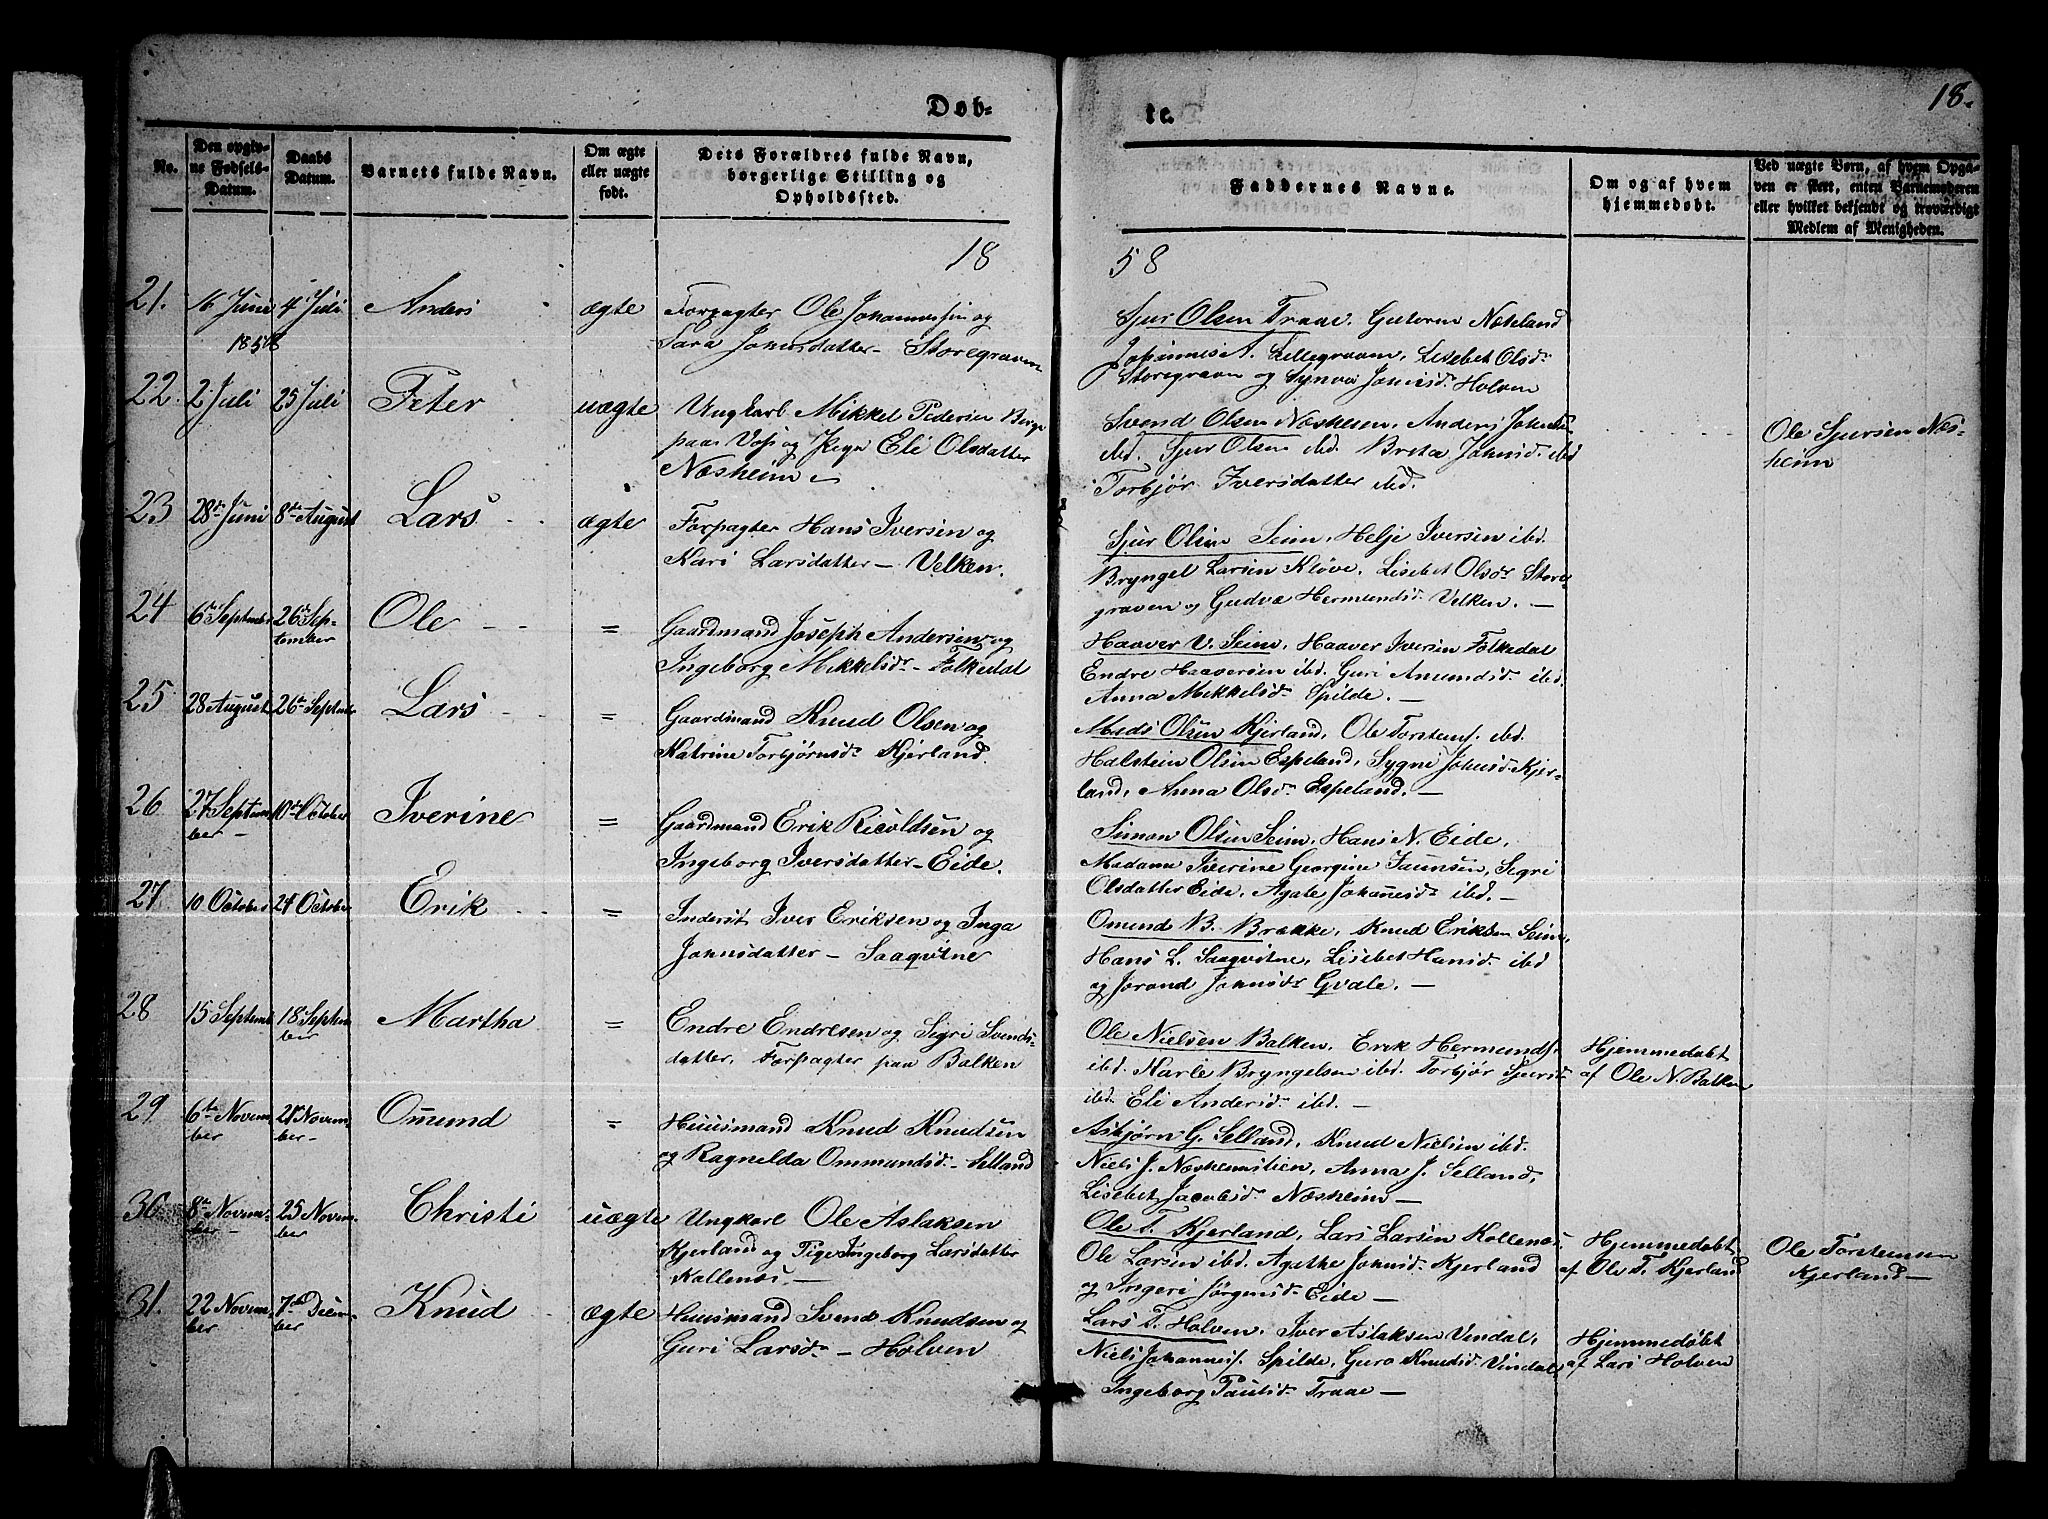 18.
Døb-
te.
No.
Den opgiv-
ne Fødsels-
Datum.
Daabs
Datum.
Barnets fulde Navn.
Om ægte
eller uægte
født.
Dets Forældres fulde Navn,
borgerlige Stilling og
Opholdssted.
Faddernes Navne.
Om og af hvem
hjemmedøbt.
Ved uægte Børn, af hvem Opga-
ven er skeet, enten Barnemoderen
eller hvilket bekjendt og troværdigt
Medlem af Menigheden.
18
58
21.
16 Juni
1858
4 Juli
Anders
ægte
Forpagter Ole Johannessen og
Sara Johnsdatter – Storegraven
Sjur Olsen Traae. Guttorm Næseland
Johannes A. Lillegraven, Lisebet Olsdr
Storegraven og Synva Johnsd. Holven
22.
2 Juli
25 Juli
Peter
uægte
Ungkarl Mikkel Pedersen Berge
paa Voss og Pige Eli Olsdatter
Næsheim –
Svend Olsen Næsheim, Anders Johns.
ibd. Sjur Olsen ibd. Brita Johnsd. ibd
Torbjør Iversdatter ibd.
Ole Sjursen Næs-
heim
23
28de Juni
8de August
Lars
ægte
Forpagter Hans Iversen og
Kari Larsdatter – Velken.
Sjur Olsen Seim, Helje Iversen ibd.
Bryngel Larsen Kløve, Lisebet Olsdr Store-
graven og Gudva Hermundsd. Velken. –
24
6te September
26de Sep-
tember
Ole
=
Gaardmand Joseph Andersen og
Ingeborg Mikkelsdr – Folkedal
Haaver V. Seim, Haaver Iversen Folkedal
Endre Haaversen ibd. Guri Amundsd. ibd.
Anna Mikkelsd. Spilde. –
25
28 August
26de Septmb
Lars
=
Gaardmand Knud Olsen og
Katrine Torbjørnsd. Kjerland.
Mads Olsen Kjerland, Ole Torstens. ibd.
Halstein Olsen Espeland, Sygni Johnsd. Kjer-
land, Anna Olsd. Espeland. –
26
27 Septem-
ber –
10de October
Iverine
=
Gaardmand Erik Ricoldsen og
Ingeborg Iversdatter – Eide.
Simon Olsen Seim, Hans N. Eide,
Madame Iverine Georgine Jaunsen, Sigri
Olsdatter Eide, Agate Johannesd. ibd. –
27.
10 October
24 October
Erik
=
Inderst Iver Eriksen og Inga
Johnsdatter – Saaqvitne
Omund B. Brække, Knud Eriksen Seim,
Hans L. Saaqvitne, Lisebet Hansd. ibd
og Jorand Johnsdr Qvale. –
28
15 Septemb
18 Septem
ber
Martha
=
Endre Endresen og Sigri Svends-
datter, Forpagter paa Balken
Ole Nielsen Balken, Erik Hermunds.
ibd. Karle Bryngelsen ibd. Torbjør Sjursd.
ibd. Eli Andersd. ibd. –
Hjemmedøbt
af Ole N. Balken
29
6te Novem-
ber
21 Novem-
ber –
Omund
=
Huusmand Knud Knudsen
og Ragnelda Ommundsd. – Selland
Asbjørn G. Selland, Knud Nielsen ibd.
Niels J. Næsheimstien, Anna J. Selland,
Lisebet Jacobsd. Næsheim –
30
8de Novem-
ber –
25 Novem-
ber
Christi
uægte
Ungkarl Ole Aslaksen
Kjerland og Pige Ingeborg Larsdatter
Kollenæs. –
Ole T. Kjerland, Lars Larsen Kollenæs,
Ole Larsen ibd. Agathe Johnsd. Kjerland
og Ingeri Jørgensd. Eide –
Hjemmedøbt
af Ole T. Kjerland
Ole Torstensen
Kjerland –
31.
22 Novem-
ber
7de Decem-
ber
Knud
ægte
Huusmand Svend Knudsen og
Guri Larsdr – Holven
Lars T. Holven, Iver Aslaksen Vindal,
Niels Johannes. Spilde, Guro Knudsd. Vindal
Ingeborg Paulsd. Traae –
Hjemmedøbt
af Lars Holven